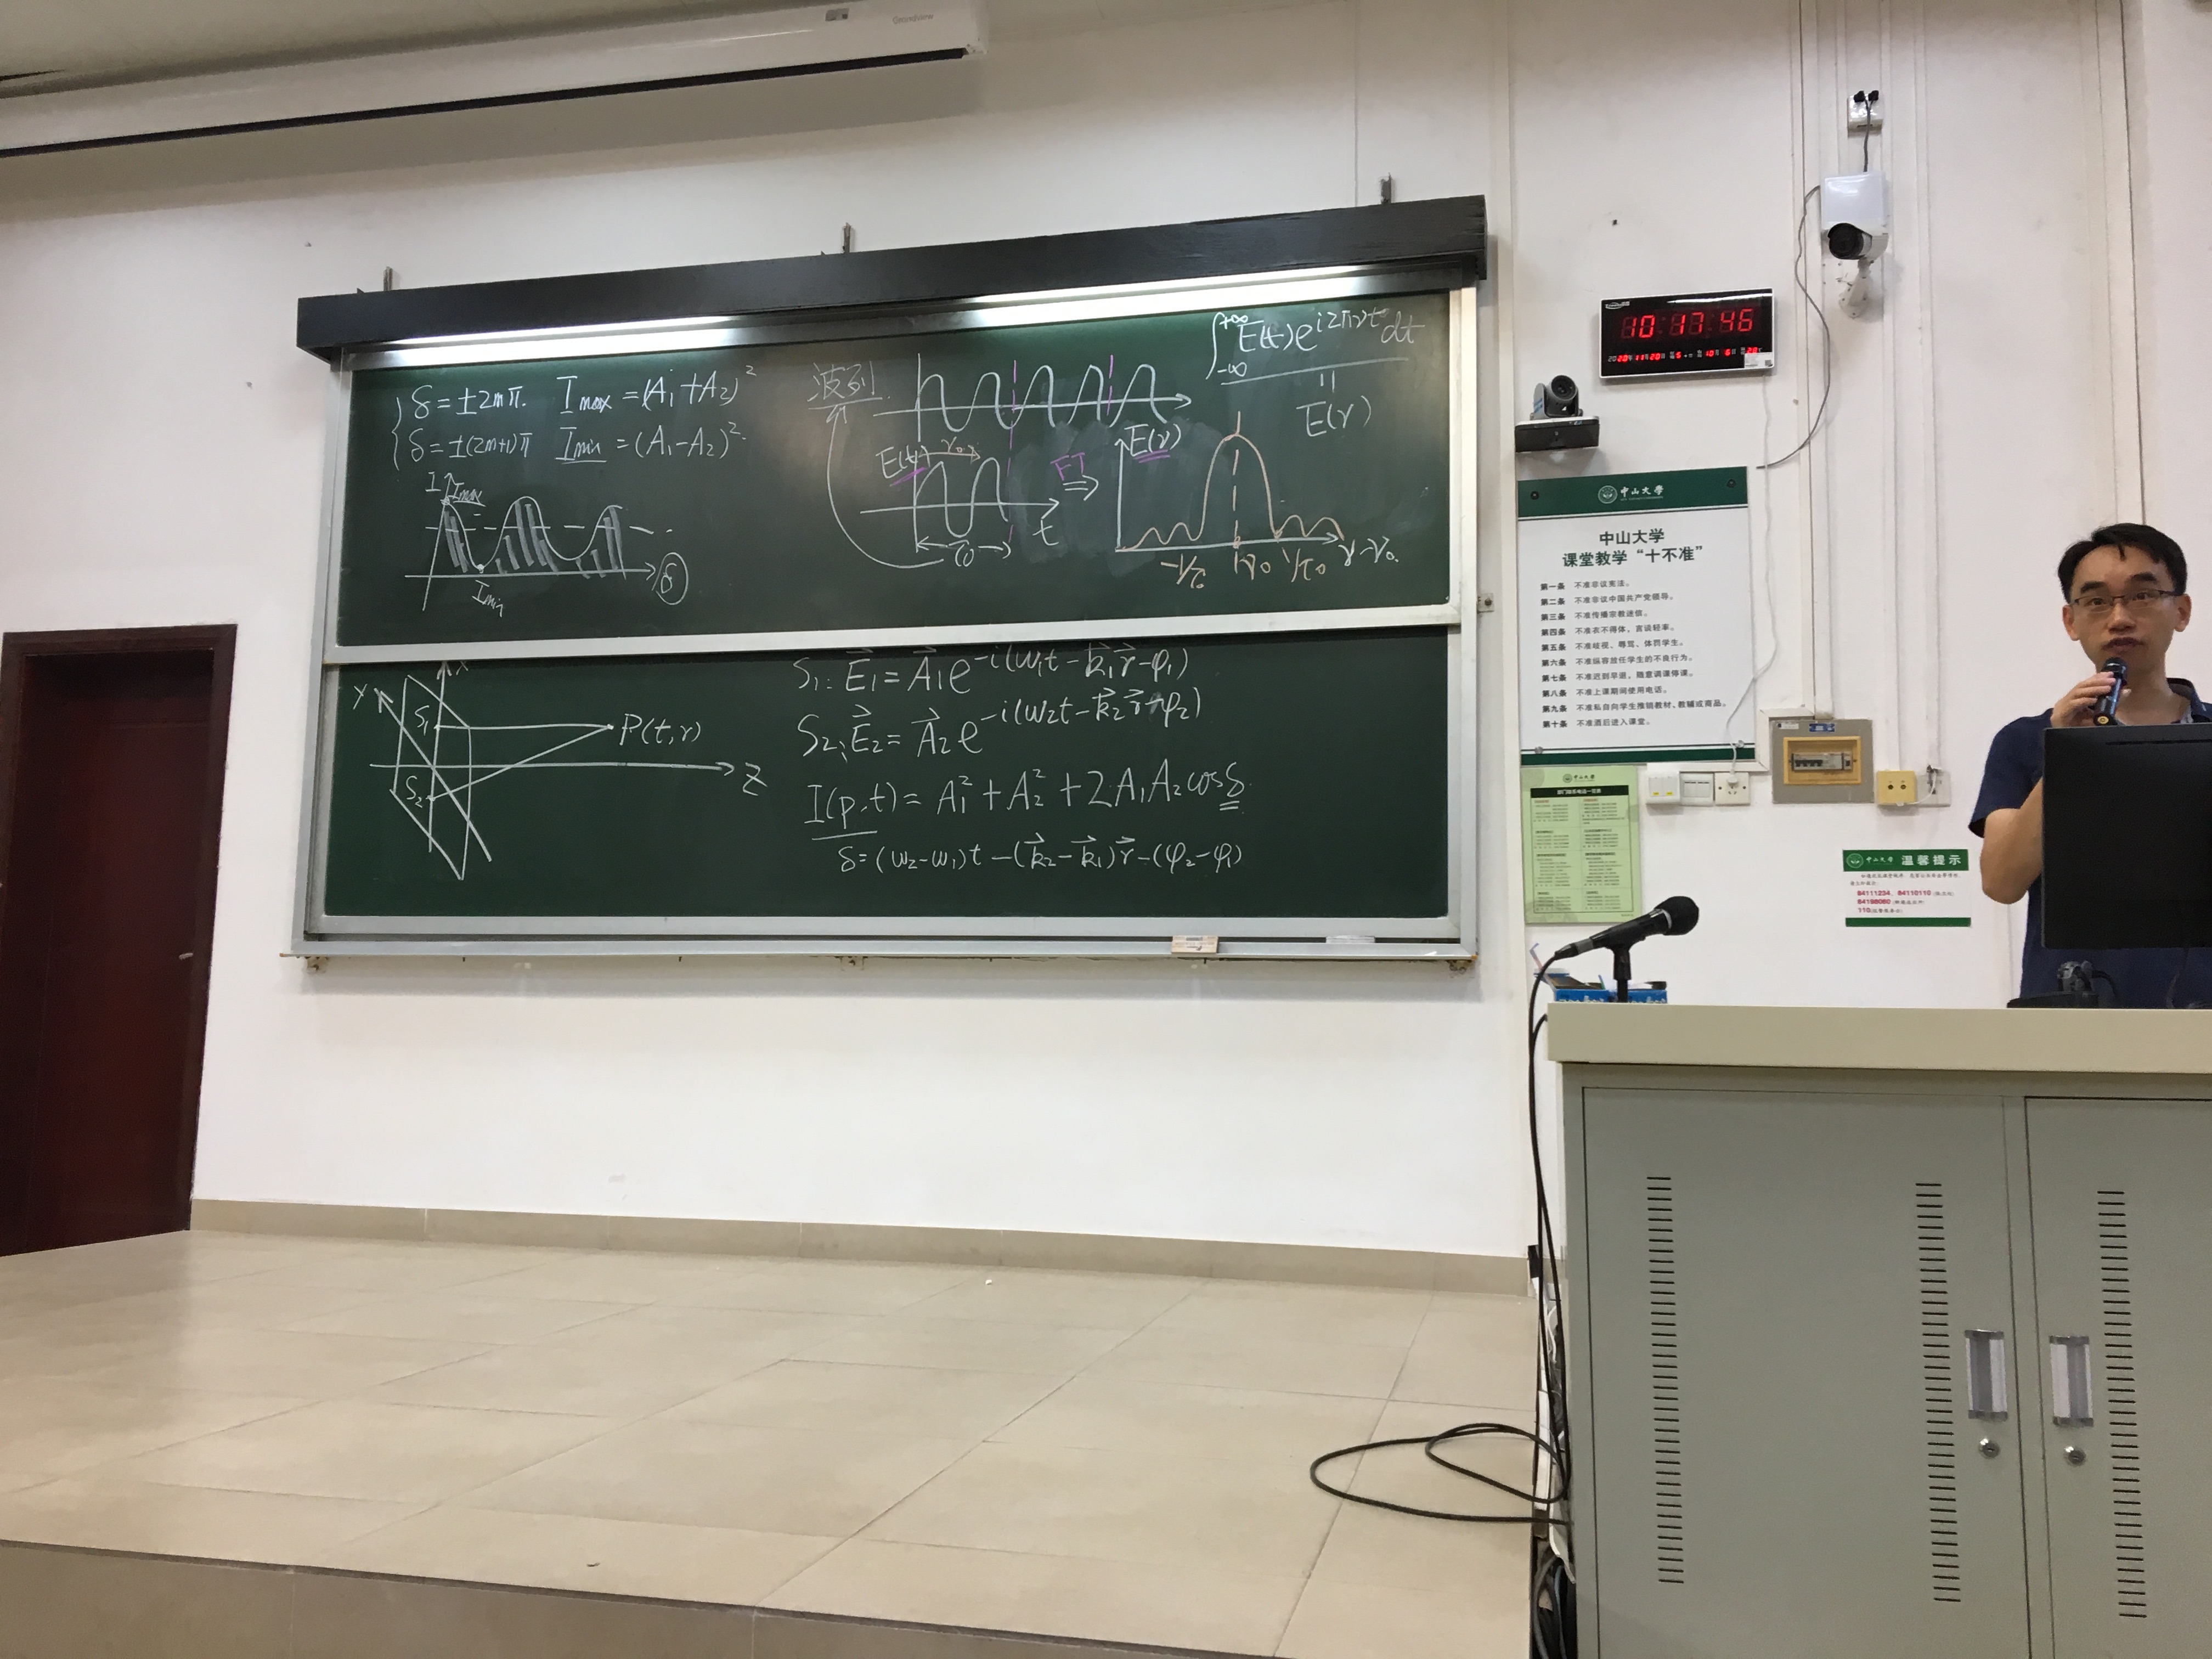 GrandView
δ=±2mπ. Imax=(A1+A2)²
δ=±(2m+1)π Imin=(A1-A2)².
I
Imax
Imin
δ
波列
E(t)
ν0
τ0
t
FT
⇒
∫-∞+∞ E(t)e^{i2πνt}dt
=
E(ν)
E(ν)
-1/τ0 ν0 1/τ0 ν-ν0.
Y
X
S1
S2
P(t,r)
Z
S1: E⃗1=A⃗1e^{-i(ω1t-k⃗1r⃗-φ1)}
S2: E⃗2=A⃗2e^{-i(ω2t-k⃗2r⃗-φ2)}
I(p,t)=A1²+A2²+2A1A2cosδ
δ=(ω2-ω1)t-(k⃗2-k⃗1)r⃗-(φ2-φ1)
10:17:46
中山大学
中山大学
课堂教学“十不准”
第一条 不准非议宪法。
第二条 不准非议中国共产党领导。
第三条 不准传播宗教迷信。
第四条 不准衣不得体，言谈轻率。
第五条 不准歧视、辱骂、体罚学生。
第六条 不准纵容放任学生的不良行为。
第七条 不准迟到早退，随意调课停课。
第八条 不准上课期间使用电话。
第九条 不准私自向学生推销教材、教辅或商品。
第十条 不准酒后进入课堂。
中山大学
中山大学 温馨提示
84111234、84110110
110